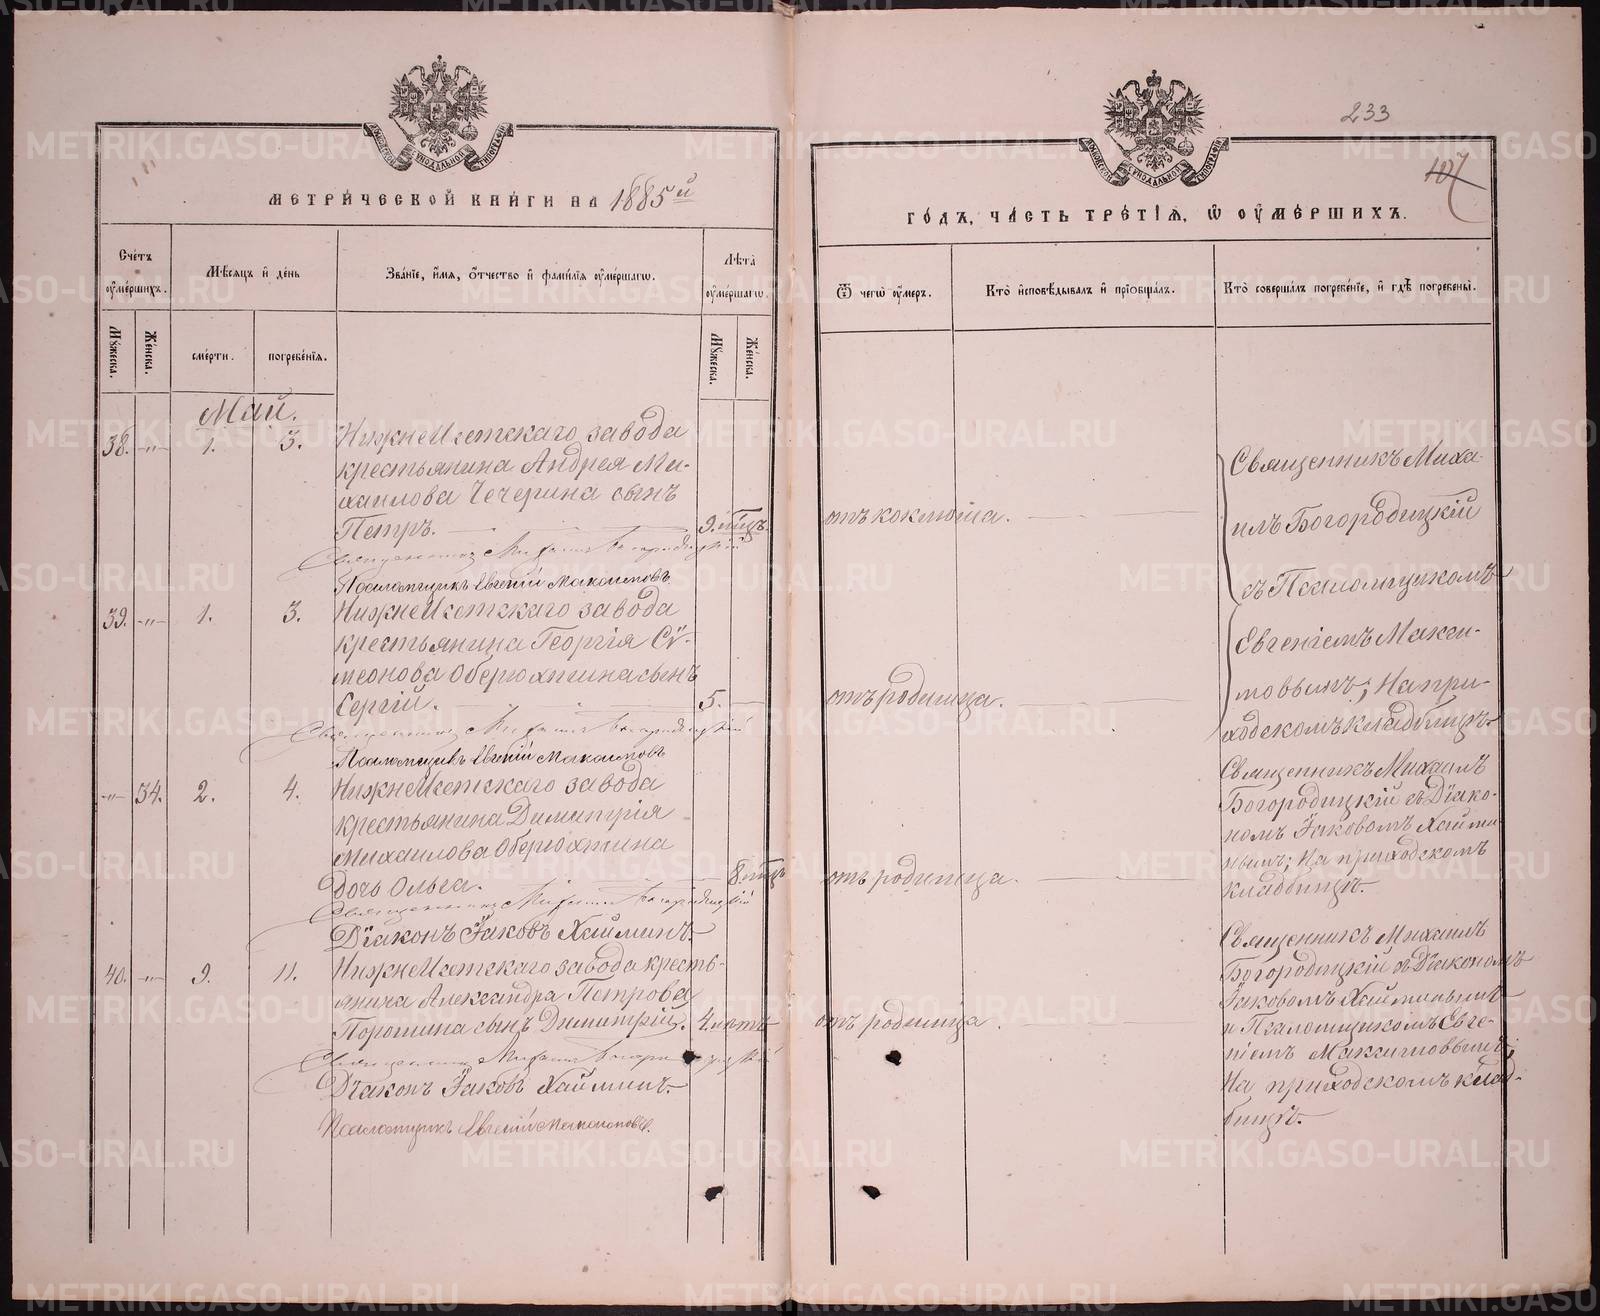 233
107
МЕТРИЧЕСКОЙ КНИГИ НА 1885й
ГОДЪ, ЧАСТЬ ТРЕТІЯ, Ѿ ОУМЕРШИХЪ.
Счетъ оумершихъ.
Мѣсяцъ и день
Званіе, имя, отчество и фамилія оумершагѡ.
Лѣта оумершагѡ.
Ѿ чегѡ оумеръ.
Кто исповѣдывалъ и пріобщалъ.
Кто совершалъ погребеніе, и гдѣ погребены.
Мꙋжеска.
Женска.
смерти.
погребенія.
Мꙋжеска.
Женска.
Май.
38. -„- 1. 3. НижнеИсетскаго завода
крестьянина Андрея Ми-
хаилова Чечерина сынъ
Петръ. 9. мцъ. отъ коклюша.
Священникъ Михаилъ Богородицкій
Псаломщикъ Евгеній Максимовъ
39. -„- 1. 3. НижнеИсетскаго завода
крестьянина Георгія Сѵ-
меонова Оберюхтина сынъ
Сергій. 5. отъ родимца.
Священникъ Михаилъ Богородицкій
Псаломщикъ Евгеній Максимовъ
Священникъ Миха-
илъ Богородицкій
съ Псаломщикомъ
Евгеніемъ Макси-
мовымъ; На при-
ходскомъ кладбищѣ.
-„- 34. 2. 4. НижнеИсетскаго завода
крестьянина Димитрія
Михаилова Оберюхтина
дочь Ольга. 8. мцъ отъ родимца.
Священникъ Михаилъ Богородицкій
Діаконъ Іаковъ Хайминъ.
Священникъ Михаилъ
Богородицкій съ Діако-
номъ Іаковомъ Хайми-
нымъ; На приходскомъ
кладбищѣ.
40. -„- 9. 11. НижнеИсетскаго завода кресть-
янина Александра Петрова
Порошина сынъ Димитрій. 4. лѣтъ отъ родимца.
Священникъ Михаилъ Богородицкій
Діаконъ Іаковъ Хайминъ.
Псаломщикъ Евгеній Максимовъ.
Священникъ Михаилъ
Богородицкій съ Діакономъ
Іаковомъ Хайминымъ
и Псаломщикомъ Евге-
ніемъ Максимовымъ;
На приходскомъ клад-
бищѣ.
METRIKI.GASO-URAL.RU